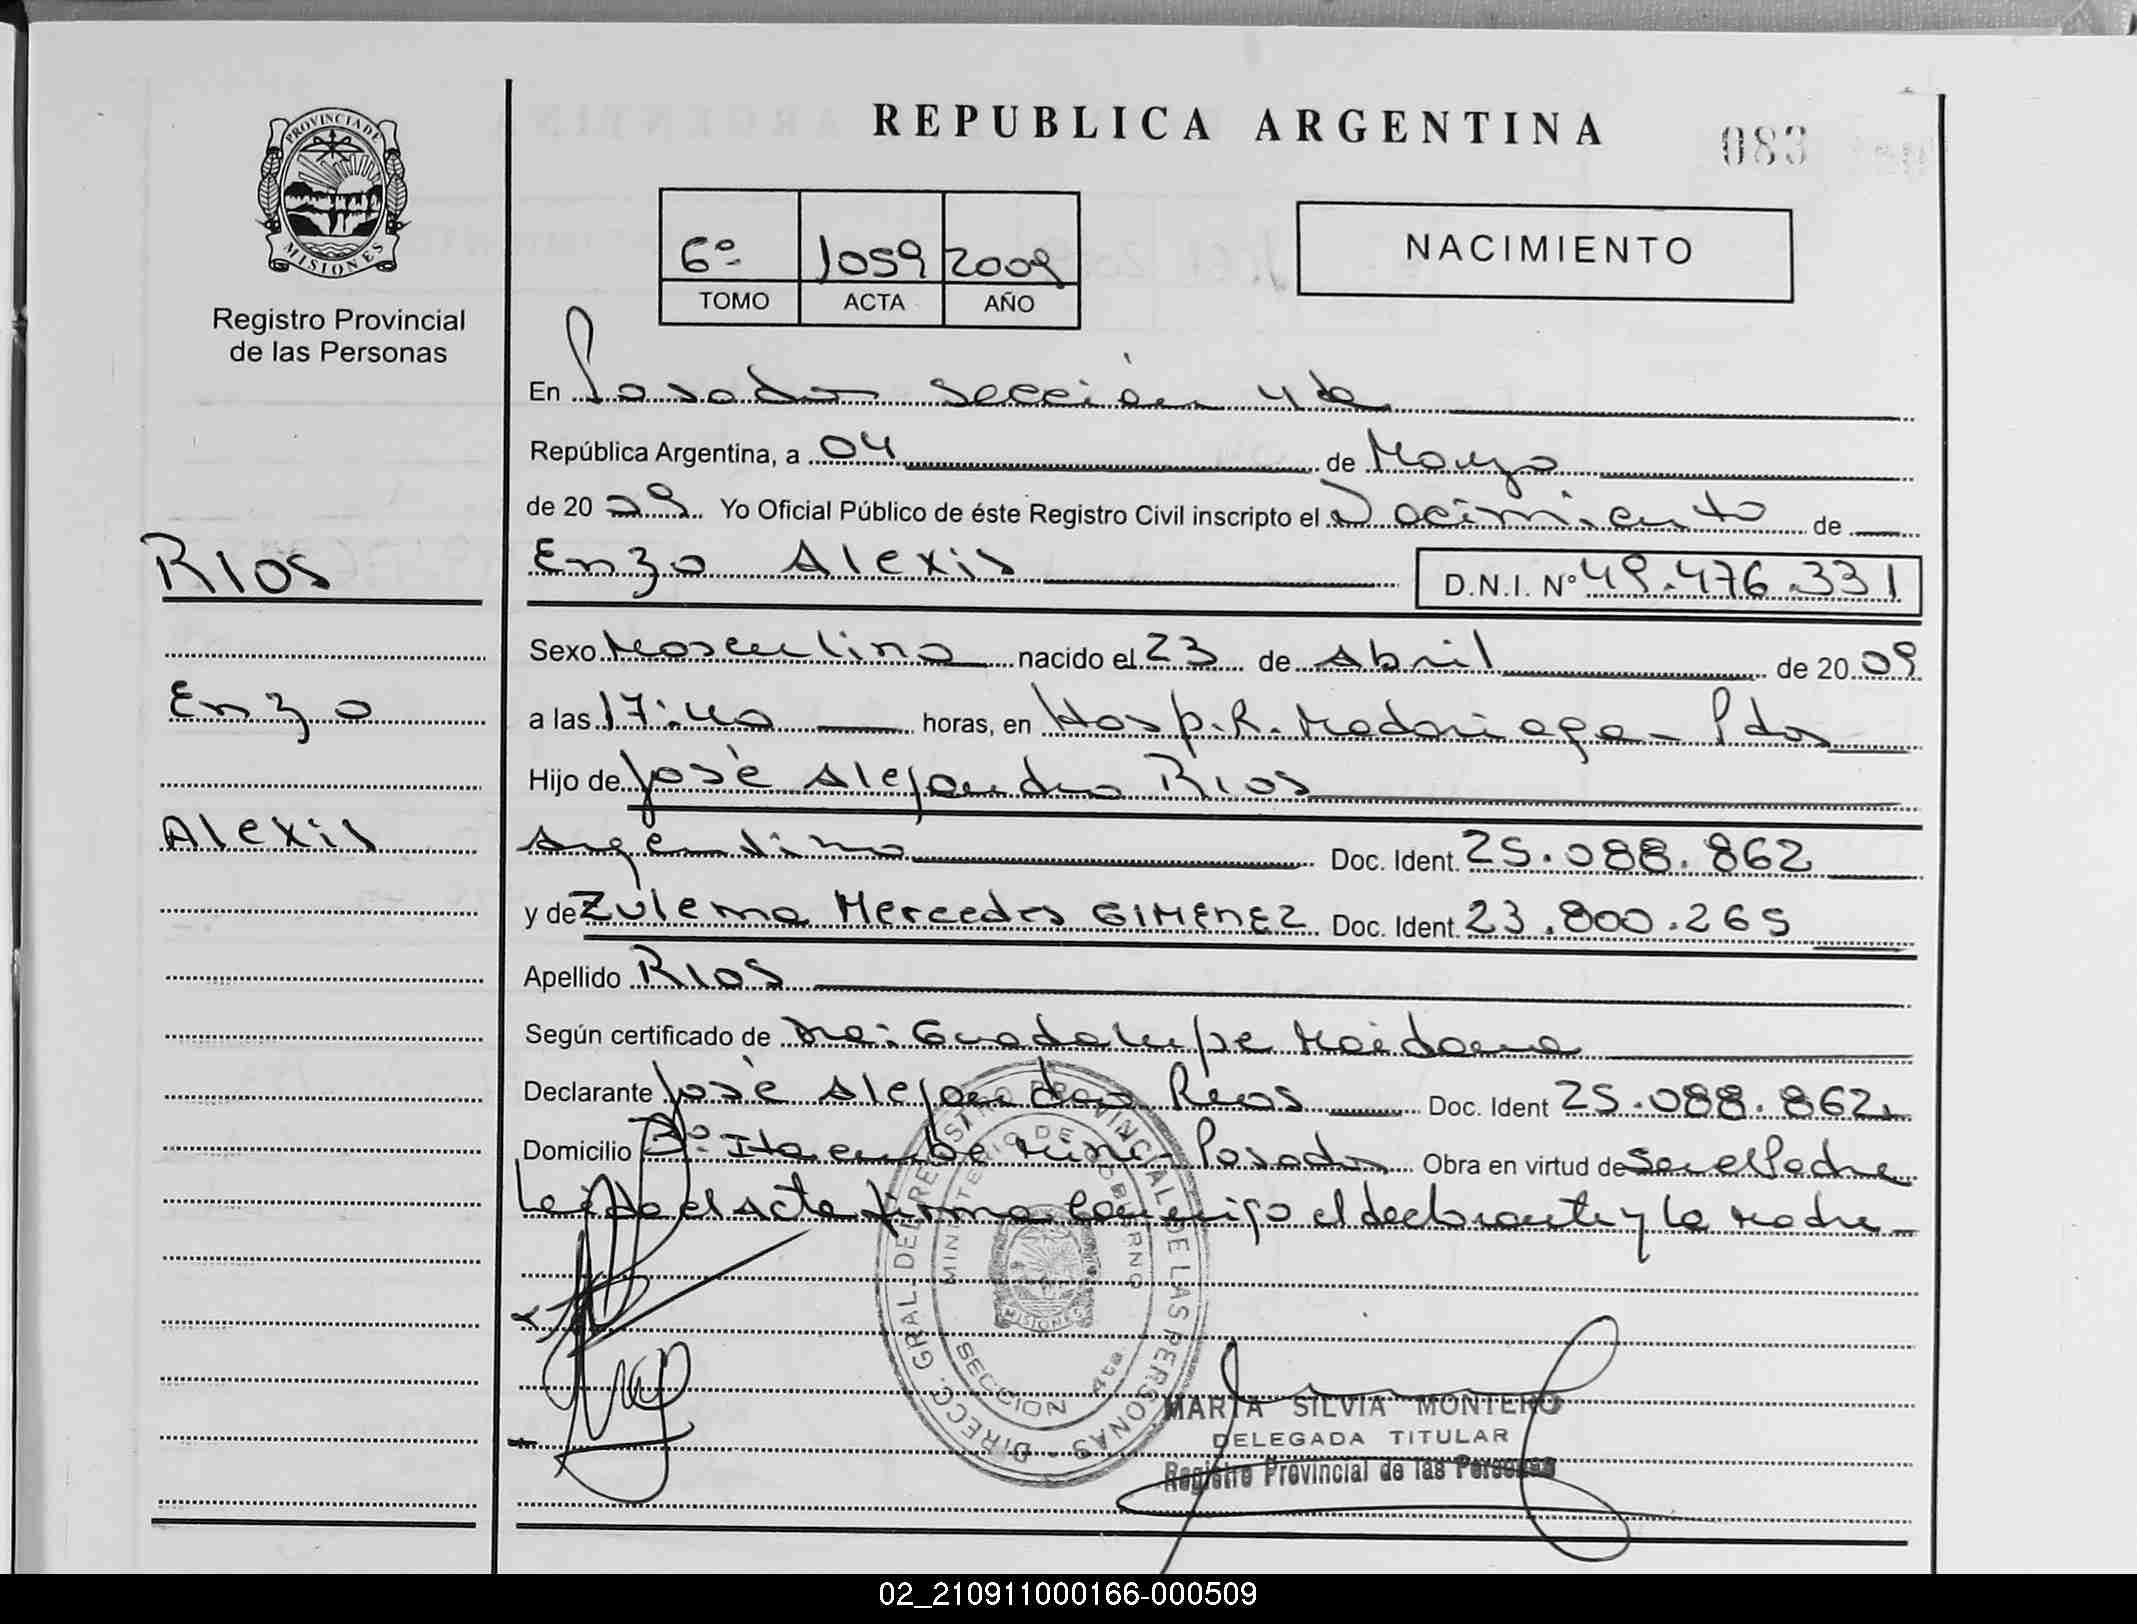 PROVINCIA DE
MISIONES
Registro Provincial
de las Personas
RIOS
Enzo
Alexis
REPUBLICA ARGENTINA
083
6º 1059 2009
TOMO ACTA AÑO
NACIMIENTO
En Posadas sección 4ta
República Argentina, a 04 de Mayo
de 20 09 Yo Oficial Público de éste Registro Civil inscripto el Nacimiento de
Enzo Alexis D.N.I. Nº 49.476.331
Sexo Masculino nacido el 23 de Abril de 20 09
a las 17:40 horas, en Hosp. R. Madariaga - Pdas
Hijo de José Alejandro RIOS
Argentino Doc. Ident. 25.088.862
y de Zulema Mercedes GIMENEZ Doc. Ident. 23.800.265
Apellido RIOS
Según certificado de Dra: Guadalupe Maidana
Declarante José Alejandro Rios Doc. Ident 25.088.862
Domicilio Bº. Itaembe Mini - Posadas Obra en virtud de Ser el Padre
Leída el Acta firma conmigo el declarante y la Madre
DIRECC. GRAL. DEL REGISTRO PROVINCIAL DE LAS PERSONAS
MINISTERIO DE GOBIERNO
MISIONES
SECCION 4ta.
MARIA SILVIA MONTERO
DELEGADA TITULAR
Registro Provincial de las Personas
02_210911000166-000509